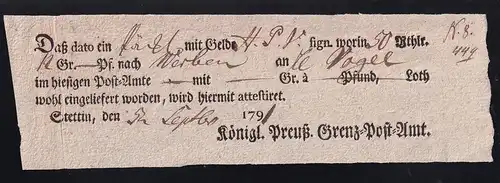 K. 8.
449
Daß dato ein mit Gelde H. P. V. sign. worin 50 Rthlr.
Gr. — Pf. nach Werben an Vogel
im hiesigen Post-Amte — mit — Gr. à — Pfund, — Loth
wohl eingeliefert worden, wird hiermit attestiret.
Stettin, den Septbr 1791
Königl. Preuß. Grenz-Post-Amt.